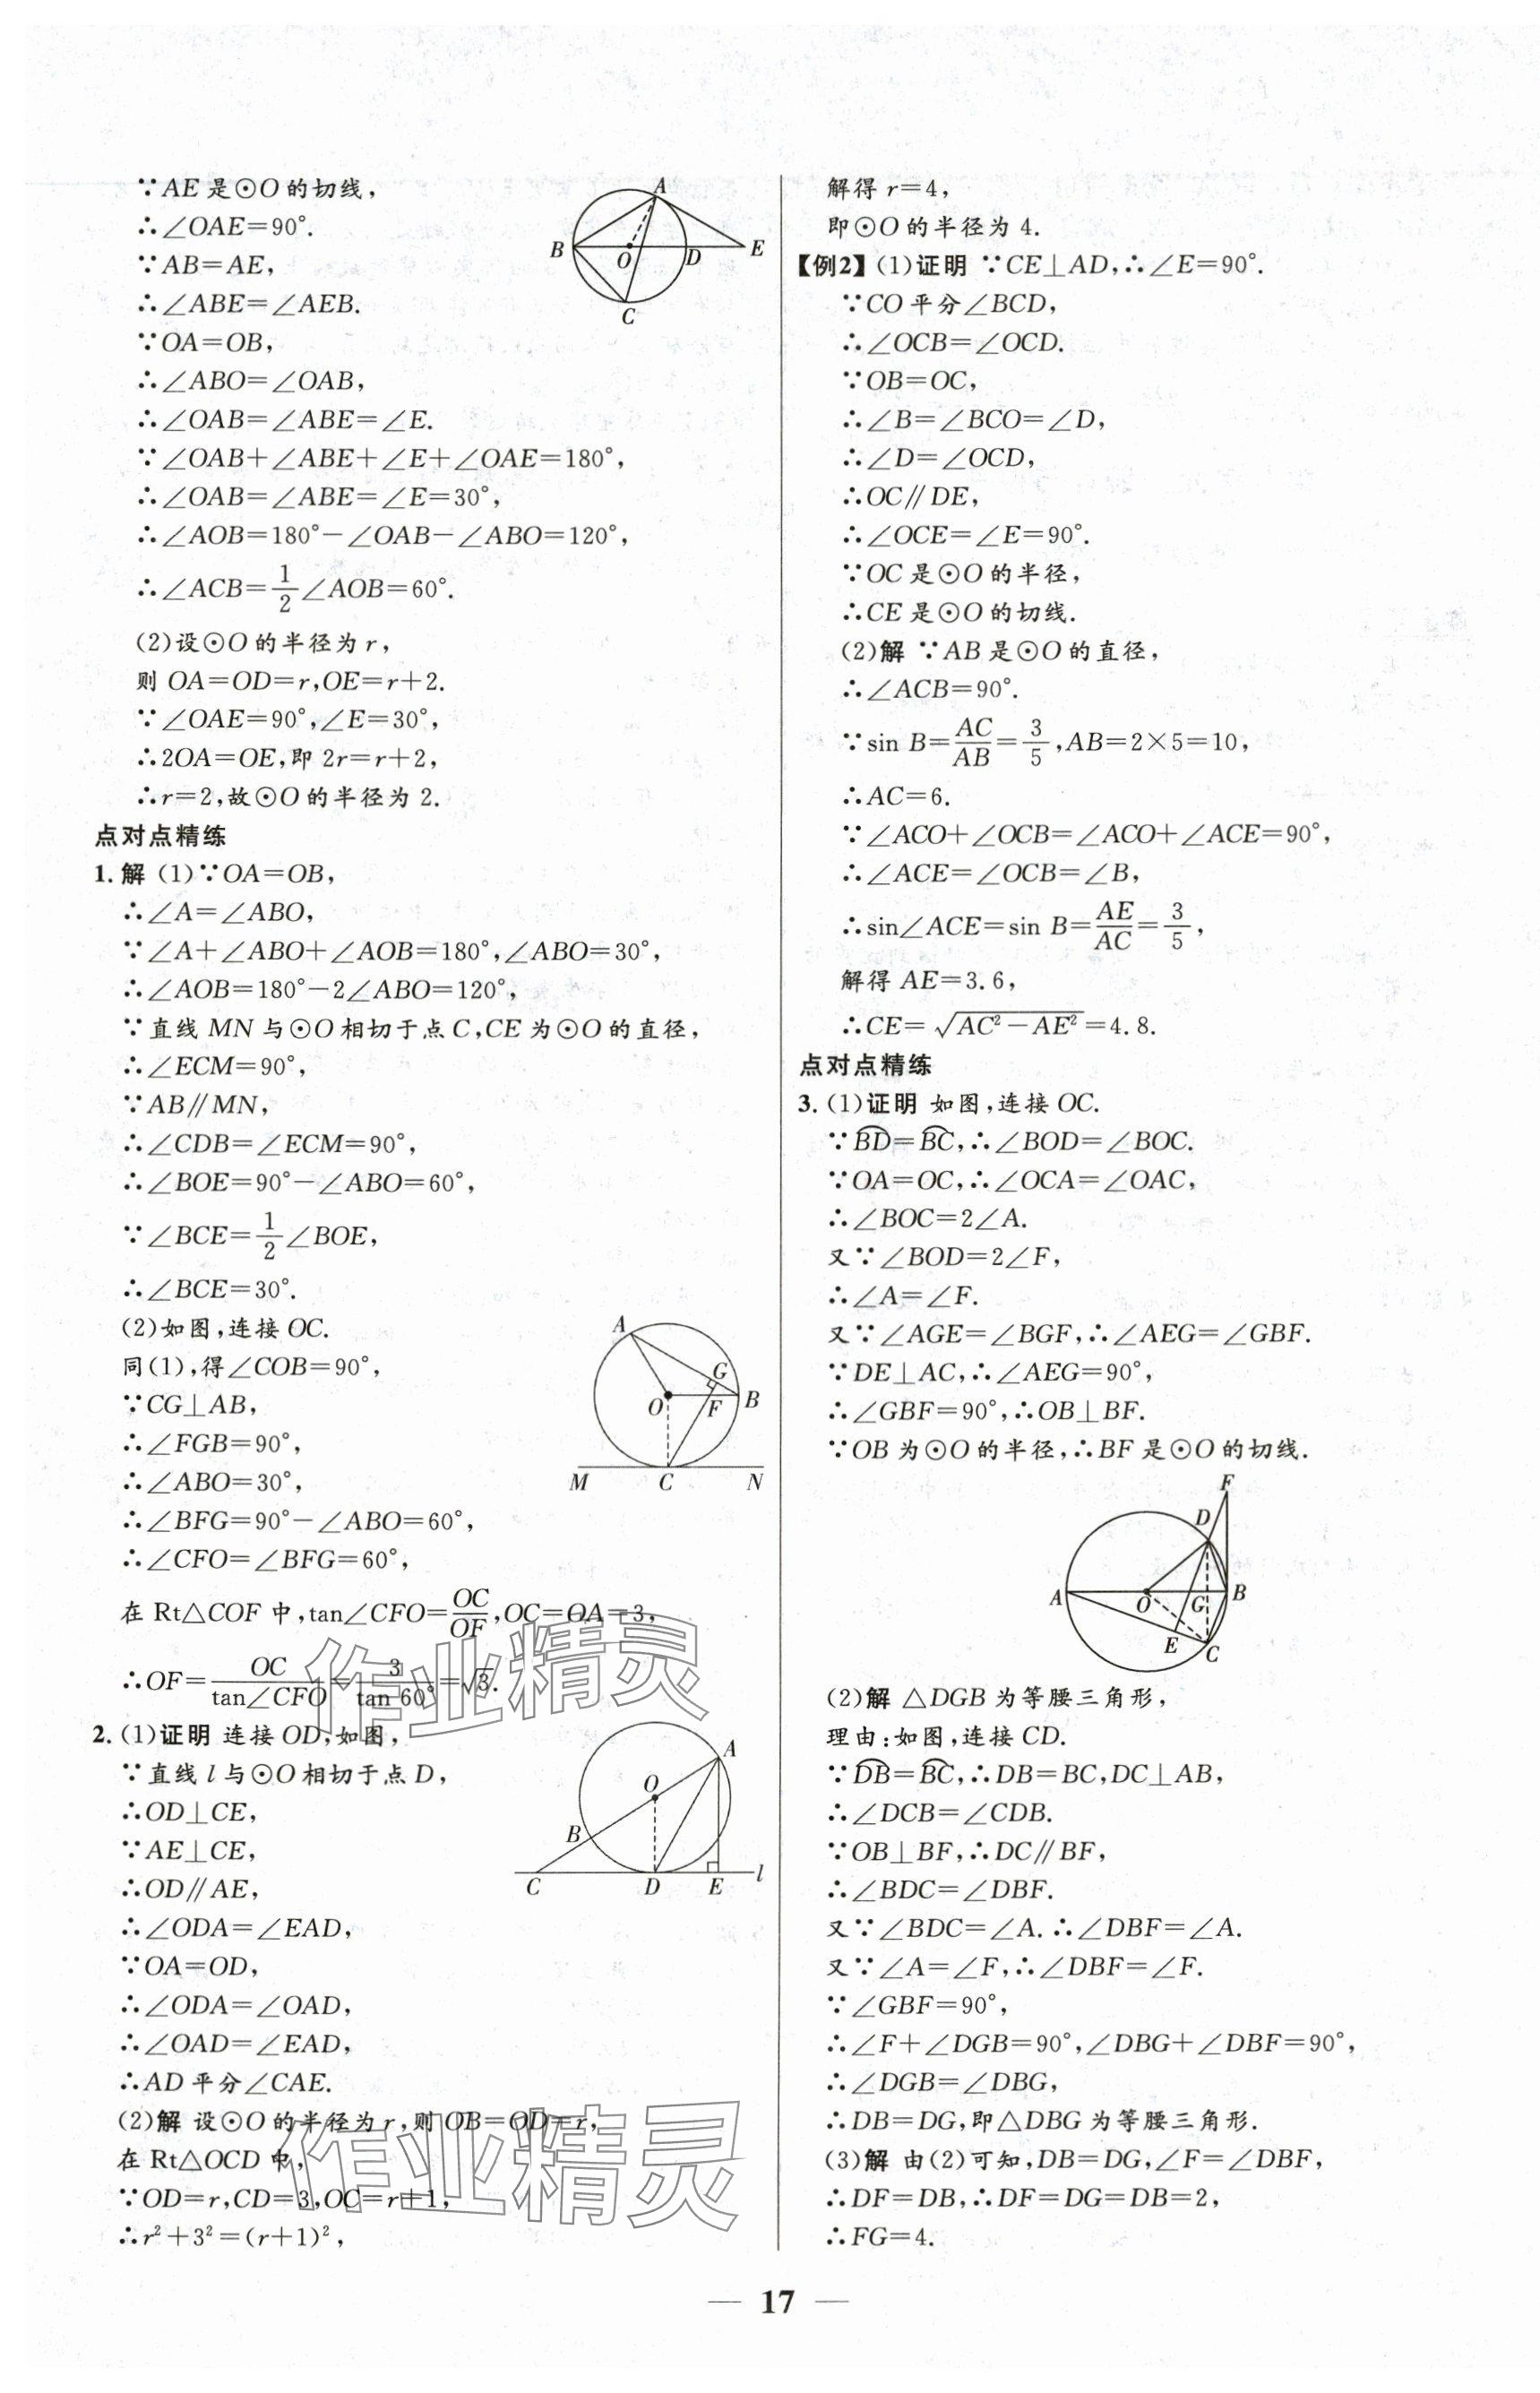 ∵AE是⊙O的切线,
∴∠OAE=90°.
∵AB=AE,
∴∠ABE=∠AEB.
∵OA=OB,
∴∠ABO=∠OAB,
∴∠OAB=∠ABE=∠E.
∵∠OAB+∠ABE+∠E+∠OAE=180°,
∴∠OAB=∠ABE=∠E=30°,
∴∠AOB=180°-∠OAB-∠ABO=120°,
∴∠ACB=1/2∠AOB=60°.
(2)设⊙O的半径为r,
则OA=OD=r,OE=r+2.
∵∠OAE=90°,∠E=30°,
∴2OA=OE,即2r=r+2,
∴r=2,故⊙O的半径为2.
A
B
O
D
E
C
点对点精练
1.解 (1)∵OA=OB,
∴∠A=∠ABO,
∵∠A+∠ABO+∠AOB=180°,∠ABO=30°,
∴∠AOB=180°-2∠ABO=120°,
∵直线MN与⊙O相切于点C,CE为⊙O的直径,
∴∠ECM=90°,
∵AB∥MN,
∴∠CDB=∠ECM=90°,
∴∠BOE=90°-∠ABO=60°,
∵∠BCE=1/2∠BOE,
∴∠BCE=30°.
(2)如图,连接OC.
同(1),得∠COB=90°,
∵CG⊥AB,
∴∠FGB=90°,
∴∠ABO=30°,
∴∠BFG=90°-∠ABO=60°,
∴∠CFO=∠BFG=60°,
在Rt△COF中,tan∠CFO=OC/OF,OC=OA=3,
∴OF=OC/tan∠CFO=3/tan 60°=√3.
A
G
O
F
B
M
C
N
2.(1)证明 连接OD,如图,
∵直线l与⊙O相切于点D,
∴OD⊥CE,
∵AE⊥CE,
∴OD∥AE,
∴∠ODA=∠EAD,
∵OA=OD,
∴∠ODA=∠OAD,
∴∠OAD=∠EAD,
∴AD平分∠CAE.
(2)解 设⊙O的半径为r,则OB=OD=r,
在Rt△OCD中,
∵OD=r,CD=3,OC=r+1,
∴r²+3²=(r+1)²,
A
O
B
C
D
E
l
解得r=4,
即⊙O的半径为4.
【例2】(1)证明 ∵CE⊥AD,∴∠E=90°.
∵CO平分∠BCD,
∴∠OCB=∠OCD.
∵OB=OC,
∴∠B=∠BCO=∠D,
∴∠D=∠OCD,
∴OC∥DE,
∴∠OCE=∠E=90°.
∵OC是⊙O的半径,
∴CE是⊙O的切线.
(2)解 ∵AB是⊙O的直径,
∴∠ACB=90°.
∵sin B=AC/AB=3/5,AB=2×5=10,
∴AC=6.
∵∠ACO+∠OCB=∠ACO+∠ACE=90°,
∴∠ACE=∠OCB=∠B,
∴sin∠ACE=sin B=AE/AC=3/5,
解得AE=3.6,
∴CE=√(AC²-AE²)=4.8.
点对点精练
3.(1)证明 如图,连接OC.
∵⌒BD=⌒BC,∴∠BOD=∠BOC.
∵OA=OC,∴∠OCA=∠OAC,
∴∠BOC=2∠A.
又∵∠BOD=2∠F,
∴∠A=∠F.
又∵∠AGE=∠BGF,∴∠AEG=∠GBF.
∵DE⊥AC,∴∠AEG=90°,
∴∠GBF=90°,∴OB⊥BF.
∵OB为⊙O的半径,∴BF是⊙O的切线.
F
D
A
O
G
B
E
C
(2)解 △DGB为等腰三角形,
理由:如图,连接CD.
∵⌒DB=⌒BC,∴DB=BC,DC⊥AB,
∴∠DCB=∠CDB.
∵OB⊥BF,∴DC∥BF,
∴∠BDC=∠DBF.
又∵∠BDC=∠A.∴∠DBF=∠A.
又∵∠A=∠F,∴∠DBF=∠F.
∵∠GBF=90°,
∴∠F+∠DGB=90°,∠DBG+∠DBF=90°,
∴∠DGB=∠DBG,
∴DB=DG,即△DBG为等腰三角形.
(3)解 由(2)可知,DB=DG,∠F=∠DBF,
∴DF=DB,∴DF=DG=DB=2,
∴FG=4.
作业精灵
作业精灵
— 17 —